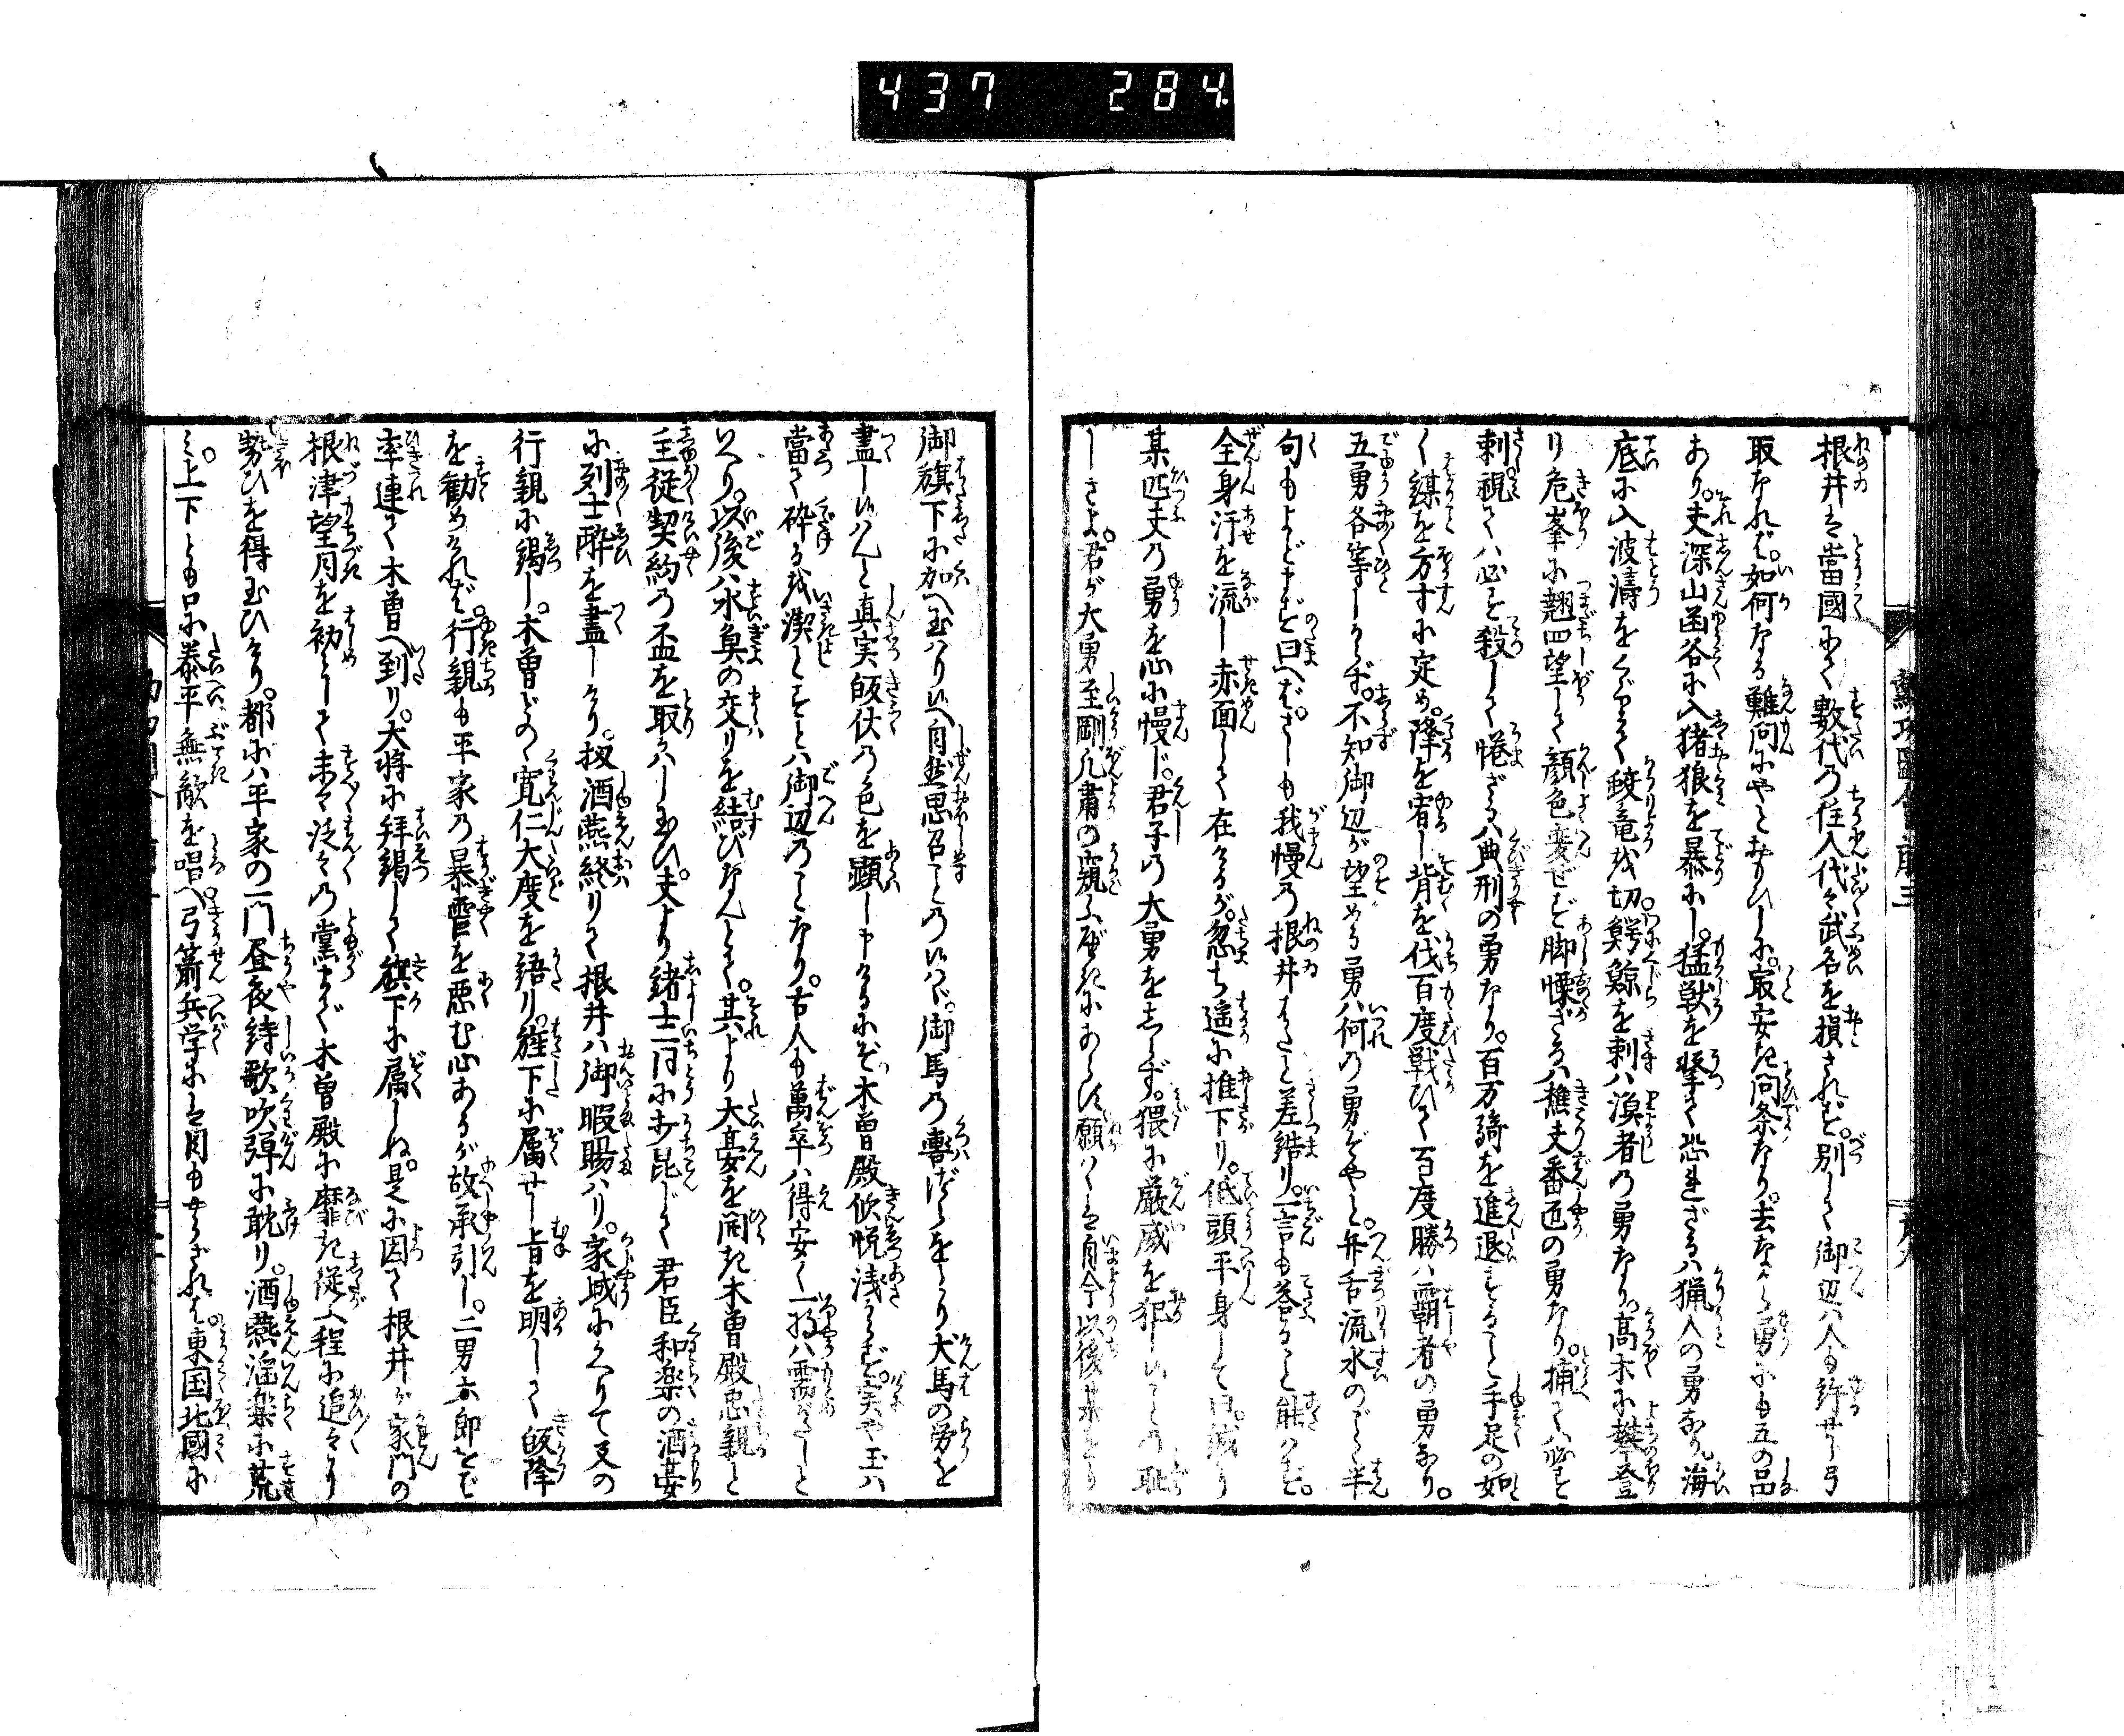 437 284
根井は當國にて數代の住人代々武名を損されど。別して御辺は人も許せし弓
取なれば。如何なる難問にやとおもひしに。最安き問条なり。去ながら勇にも五の品
あり。夫深山函谷に入猪狼を暴にし。猛獣を撃て恐れざるは猟人の勇なり。海
底に入波濤をくゞりて蛟竜を切。鰐鯨を刺は漁者の勇なり。高木に攀登
り危峯に翹四望して顔色変ぜず脚慄ざるは樵夫番匠の勇なり。捕ては必ず
刺視ては必ず殺して惓ざるは典刑の勇なり。百万騎を進退すること手足の如
く謀を方寸に定め。降を宥し背を伐百度戦ひて百度勝は覇者の勇なり。
五勇各等しからず。不知御辺が望める勇は何の勇ぞやと。弁舌流水のごとく半
句もよどまず曰へば。さしも我慢の根井はたと差結り。一言も答ること能はず。
全身汗を流し赤面して在けるが。忽ち遥に推下り。低頭平身して曰。誠に
某匹夫の勇を心に慢じ。君子の大勇をしらず。猥に厳威を犯しゝことの恥
しさよ。君が大勇至剛凡庸の窺ふ所にあらず願はくは自今以後某をも
御旗下に加へ玉はり候へ自然思召ことの候はゞ。御馬の轡づらをとり犬馬の労を
盡し候はんと真実皈伏の色を顕し申けるにぞ。木曽殿欣悦浅からず。実や玉は
當て砕る を潔しとすとは御辺のことなり。古人も萬卒は得安く一将は需がたしと
いへり。以後は水魚の交りを結びなんとて。其より大宴を開き木曽殿忠親と
主従契約の盃を取かはし玉ひ。夫より諸士一同にうち昆じて君臣和楽の酒宴
に列士酔を盡しけり。扨酒燕終りて根井は御暇賜はり。家城にかへりて又の
行親に謁し。木曽どのゝ寛仁大度を語り。旌下に属せし旨を明して皈降
を勧めければ。行親も平家の暴虐を悪む心あるが故承引し。二男六郎をど
率連て木曽へ到り。大将に拜謁して旗下に属しぬ。是に因て根井が家門の
根津望月を初として末々泛々の黨まで木曽殿に靡き従ふ程に追々に
勢ひを得玉ひけり。都には平家の一門昼夜詩歌吹弾に耽り。酒燕淫楽に荒
み。上下とも口に泰平無敵を唱へ。弓箭兵学には目もやらざれば東国北國に